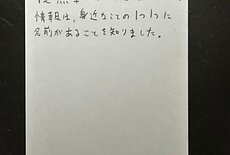 情報は、身近なことの1つ1つに
名前があることを知りました。